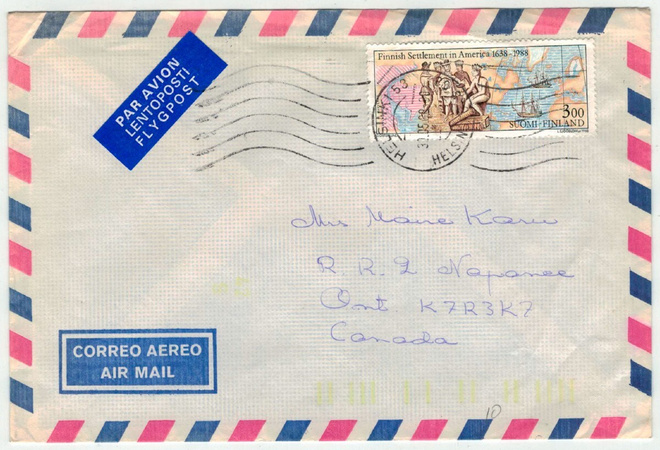 PAR AVION
LENTOPOSTI
FLYGPOST
Finnish Settlement in America 1638-1988
3.00
SUOMI-FINLAND
HELSINKI 53
HELSIN
Mrs Maire Karu
R. R. 2 Napanee
Ont. K7R3K7
Canada
CORREO AEREO
AIR MAIL
10